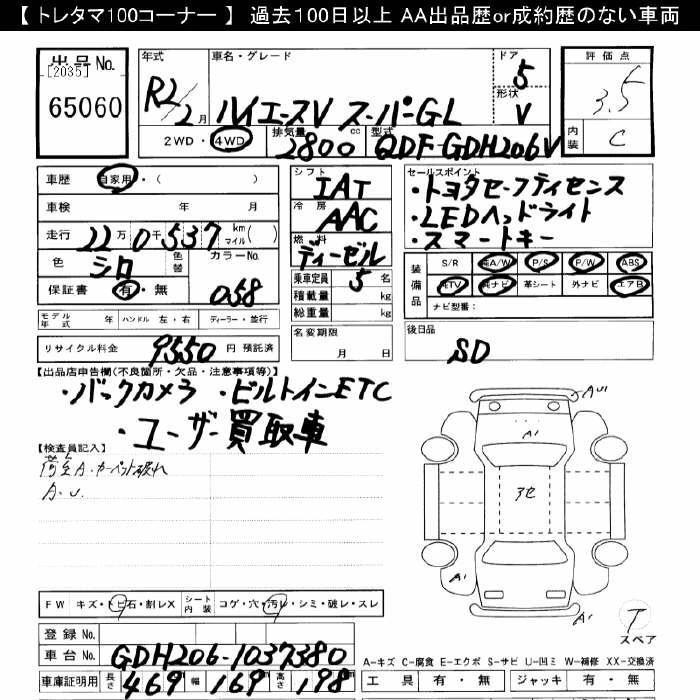 【トレタマ100コーナー】 過去100日以上 AA出品歴or成約歴のない車両
出品No. [2035] 65060
年式 R2/2月 車名・グレード ハイエースV スーパーGL ドア 5 形状 V
評価点 3.5 内装 C
2WD・4WD 排気量 2800cc 型式 QDF-GDH206V
車歴 自家用・( )
車検 年 月
走行 22万0千537 km マイル( )
色 シロ 色替 カラーNo. 058
保証書 有・無
シフト IAT
冷房 AAC
燃料 ディーゼル
乗車定員 5名
積載量 kg
総重量 kg
セールスポイント
・トヨタセーフティセンス
・LEDヘッドライト
・スマートキー
装備品 S/R 純A/W P/S P/W ABS
純TV 純ナビ 革シート 外ナビ エアB
ナビ型番:
モデル年式 年 ハンドル 左・右 ディーラー・並行
リサイクル料金 9550円 預託済
名変期限 月 日
後日品 SD
【出品店申告欄(不良箇所・欠品・注意事項等)】
・バックカメラ ・ビルトインETC
・ユーザー買取車
【検査員記入】
荷室A・カーペット破れ
A.U.
AU1
A1
3セ
A1
A1
T
スペア
FW キズ・トビ石・割レX シート内装 コゲ・穴・汚レ・シミ・破レ・スレ
登録No.
車台No. GDH206-1037380
車庫証明用 長さ 469 幅 169 高さ 198
A-キズ C-腐食 E-エクボ S-サビ U-凹ミ W-補修 XX-交換済
工具 有・無 ジャッキ 有・無